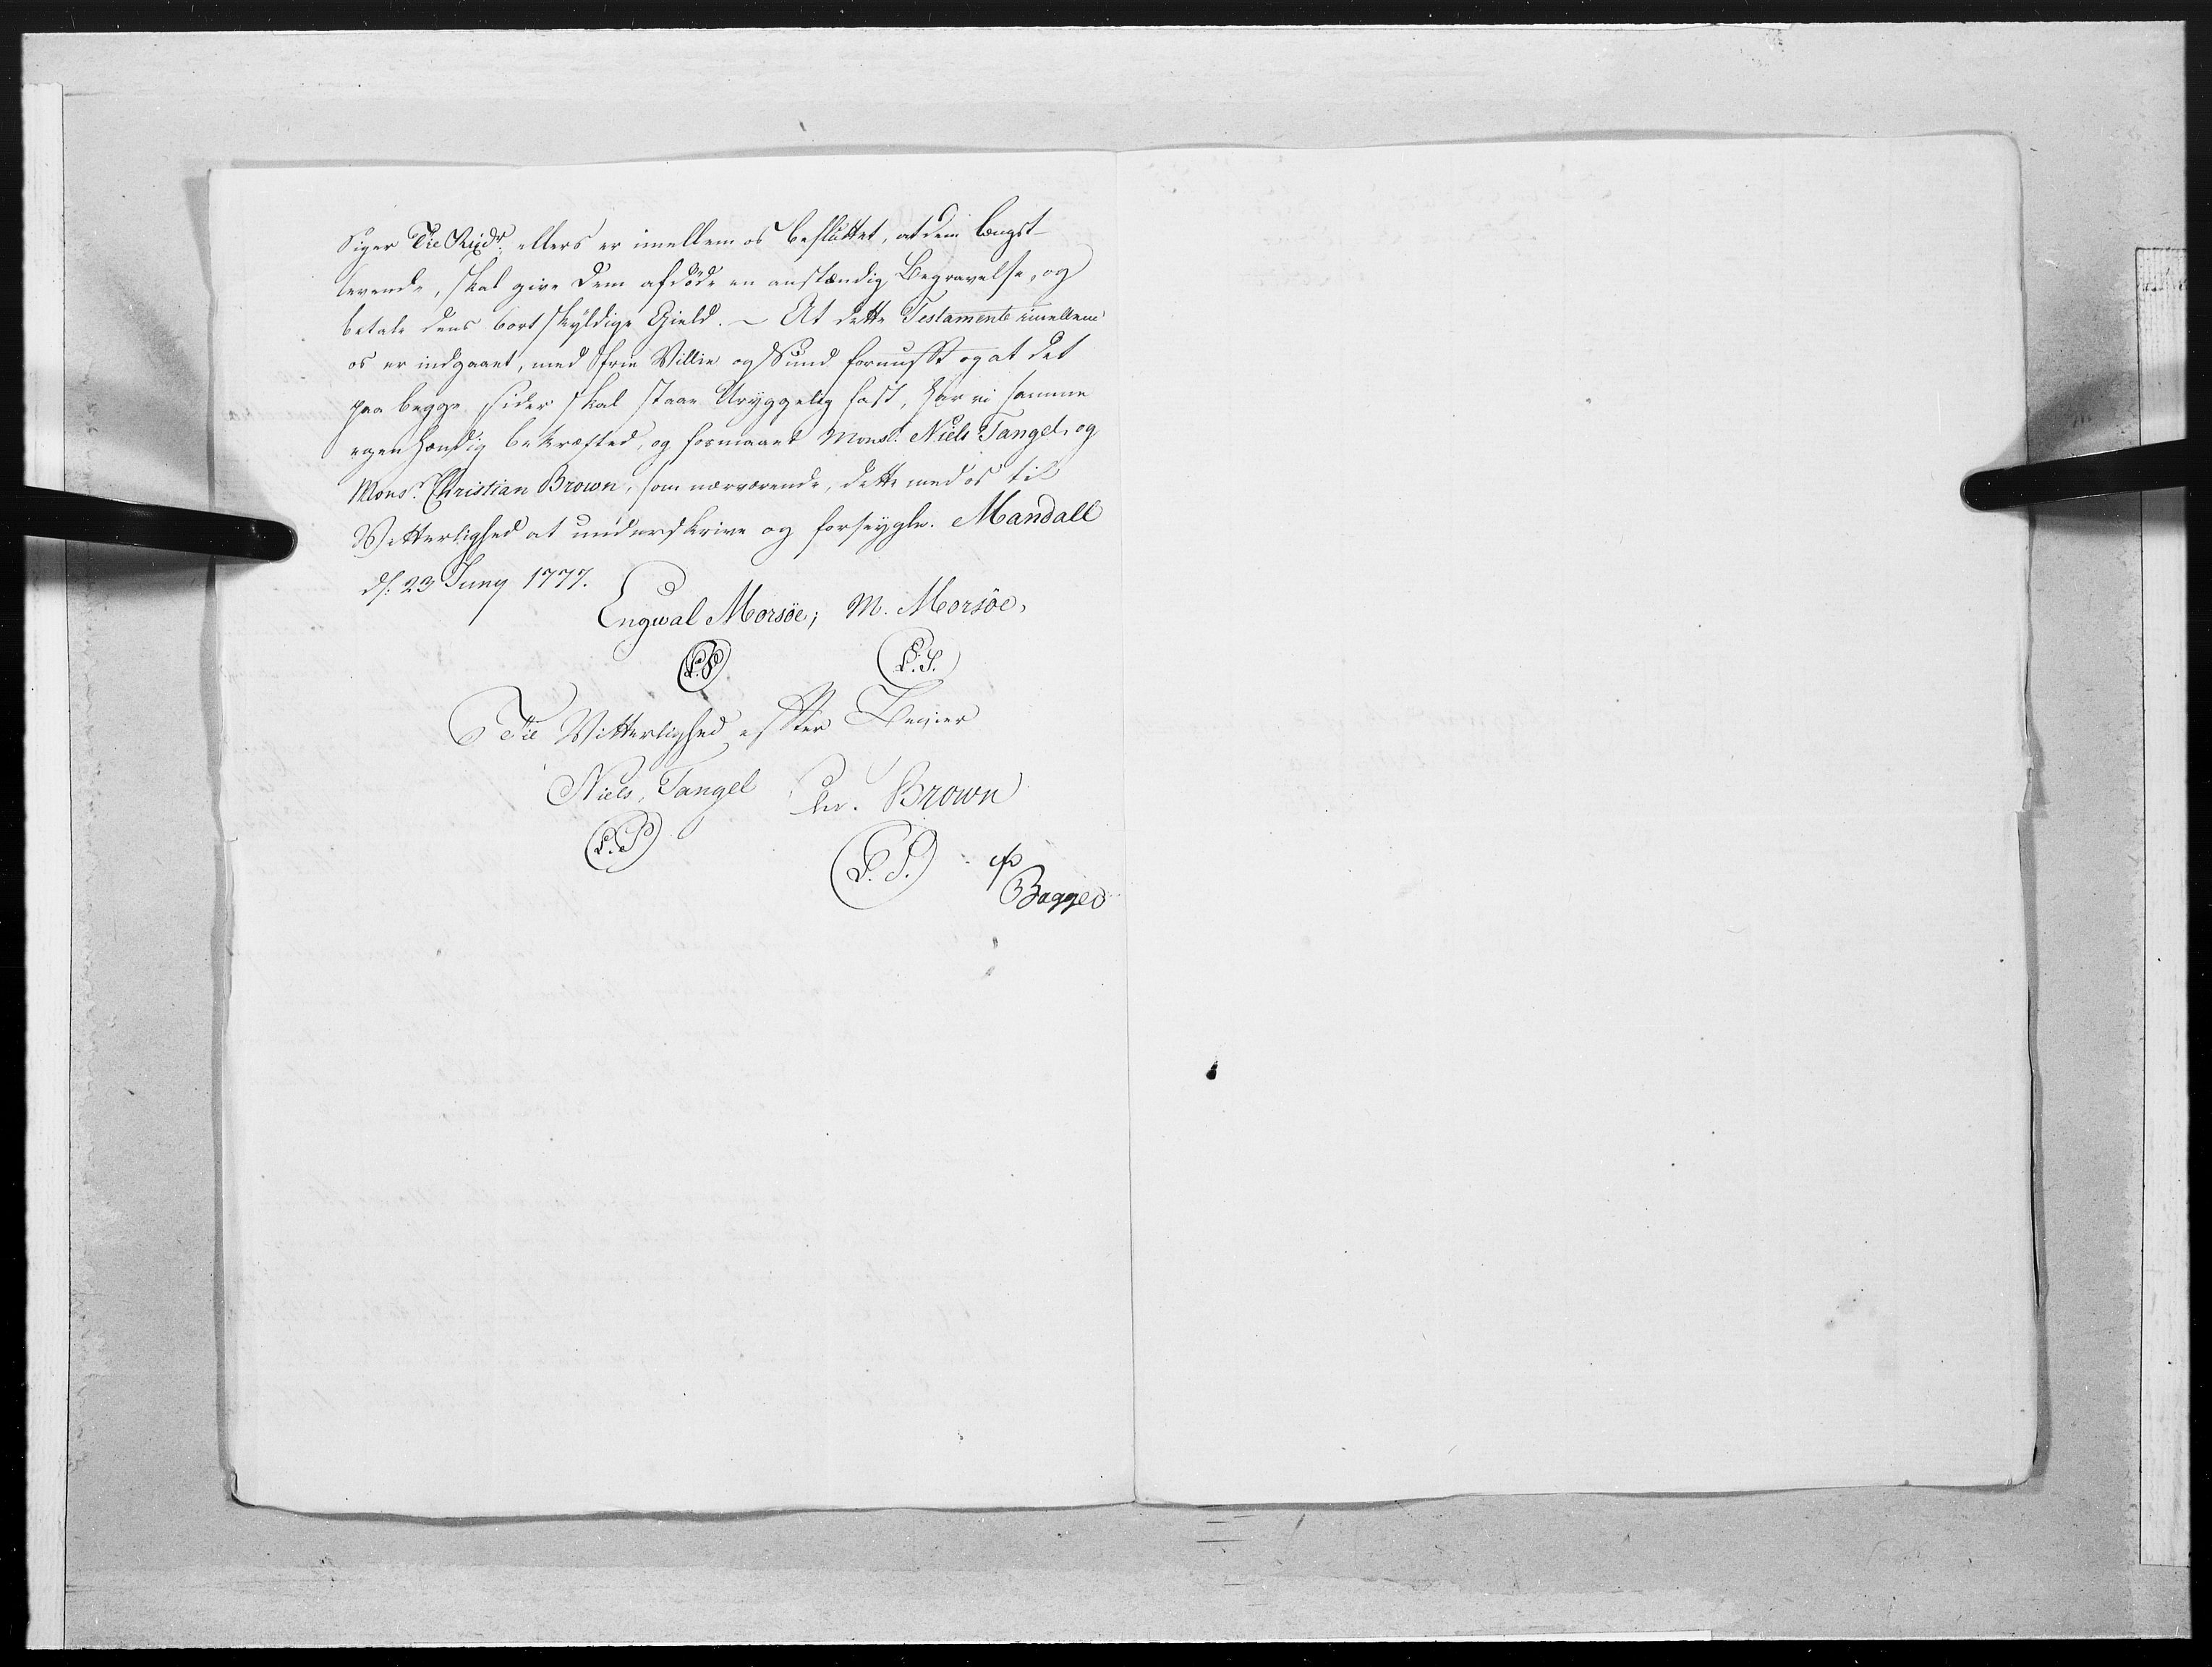 Siger Tie Rixdr. ellers er imellem os besluttet, at den længst-
levende, skal give dem afdøde en anstændig Begravelse, og
betale dens bortskyldige Gield. - At dette Testamente imellem
os er indgaaet, med frie Villie og Sund fornufft og at det
paa begge sider skal staae Uryggelig fast, har vi samme
egenhændig bekræfted, og formaaet Monsr. Niels Tangel, og
Monsr. Christian Brown, som nærværende, dette med os til
Vitterlighed at underskrive og forseygle. Mandall
d. 23 Juny 1777.
Engwal Morsöe; M. Morsöe,
(L.S.) (L.S.)
Til Vitterlighed effter Begier
Niels, Tangel Chr. Brown
(L.S) (L.S.)
Bagge